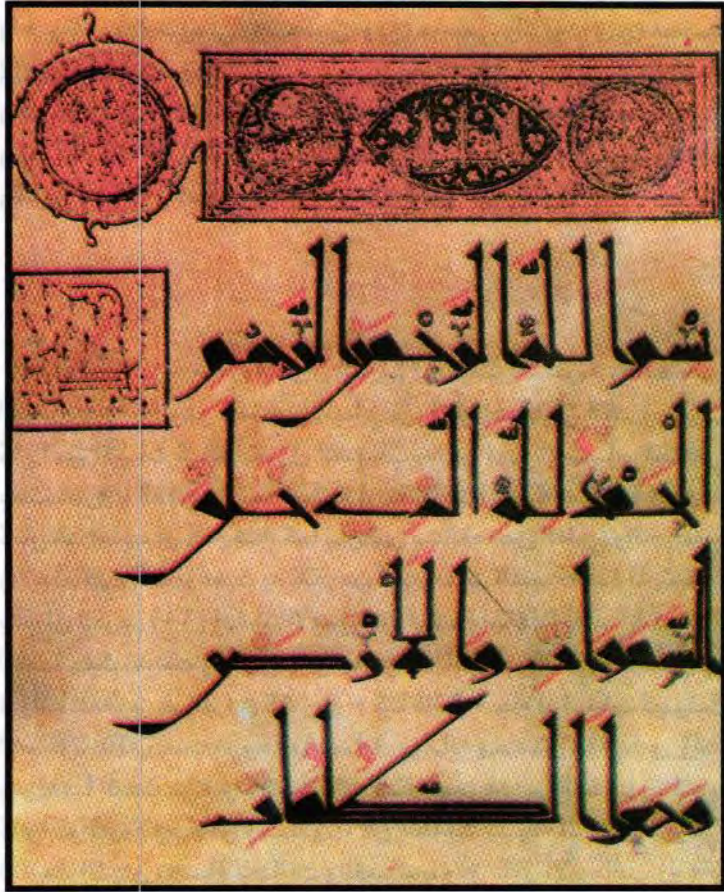 بِسْمِ اللَّهِ الرَّحْمَنِ الرَّحِيمِ
الْحَمْدُ لِلَّهِ الَّذِي خَلَقَ
السَّمَوَاتِ وَالْأَرْضَ وَ
جَعَلَ الظُّلُمَاتِ